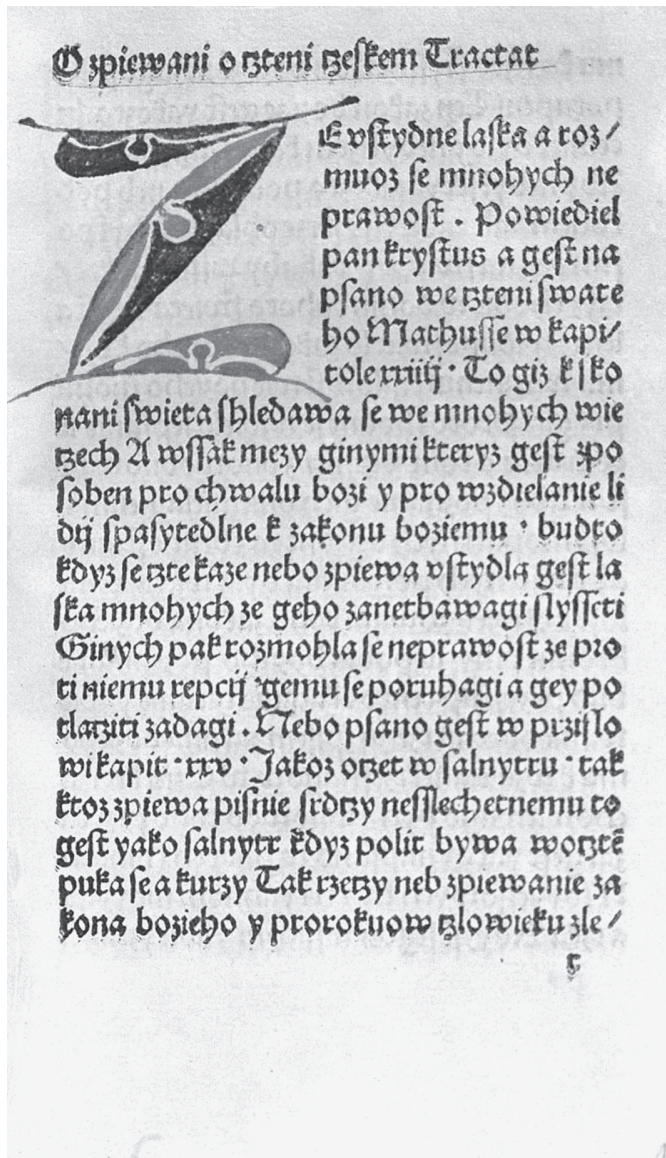 O zpiewani o cztení czeskem Tractat
ZE vstydne laska a roz/
muoz se mnohych ne
prawost . Powiediel
pan krystus a gest na
psano we cztení swate
ho Mathusse w kapi/
tole xxiiij · To giz k sko
nani swieta shledawa se we mnohych wie
czech A wssak mezy ginymi kteryz gest zpo
soben pro chwalu bozi y pro wzdielanie li
dij spasytedlne k zakonu boziemu · budto
kdyz se czte kaze nebo zpiewa vstydla gest la
ska mnohych ze geho zanetbawagi slysseti
Ginych pak rozmohla se neprawost ze pro
ti niemu repcij gemu se poruhagi a gey po
tlacziti zadagi . Nebo psano gest w przislo
wi kapit · xxv · Jakoz oczet w salnytru · tak
ktoz zpiewa pisnie srdczy nesslechetnemu to
gest yako salnytr kdyz polit bywa wocztē
puka se a kurzy Tak rzeczy neb zpiewanie za
kona bozieho y prorokuow czlowieku zle /
c